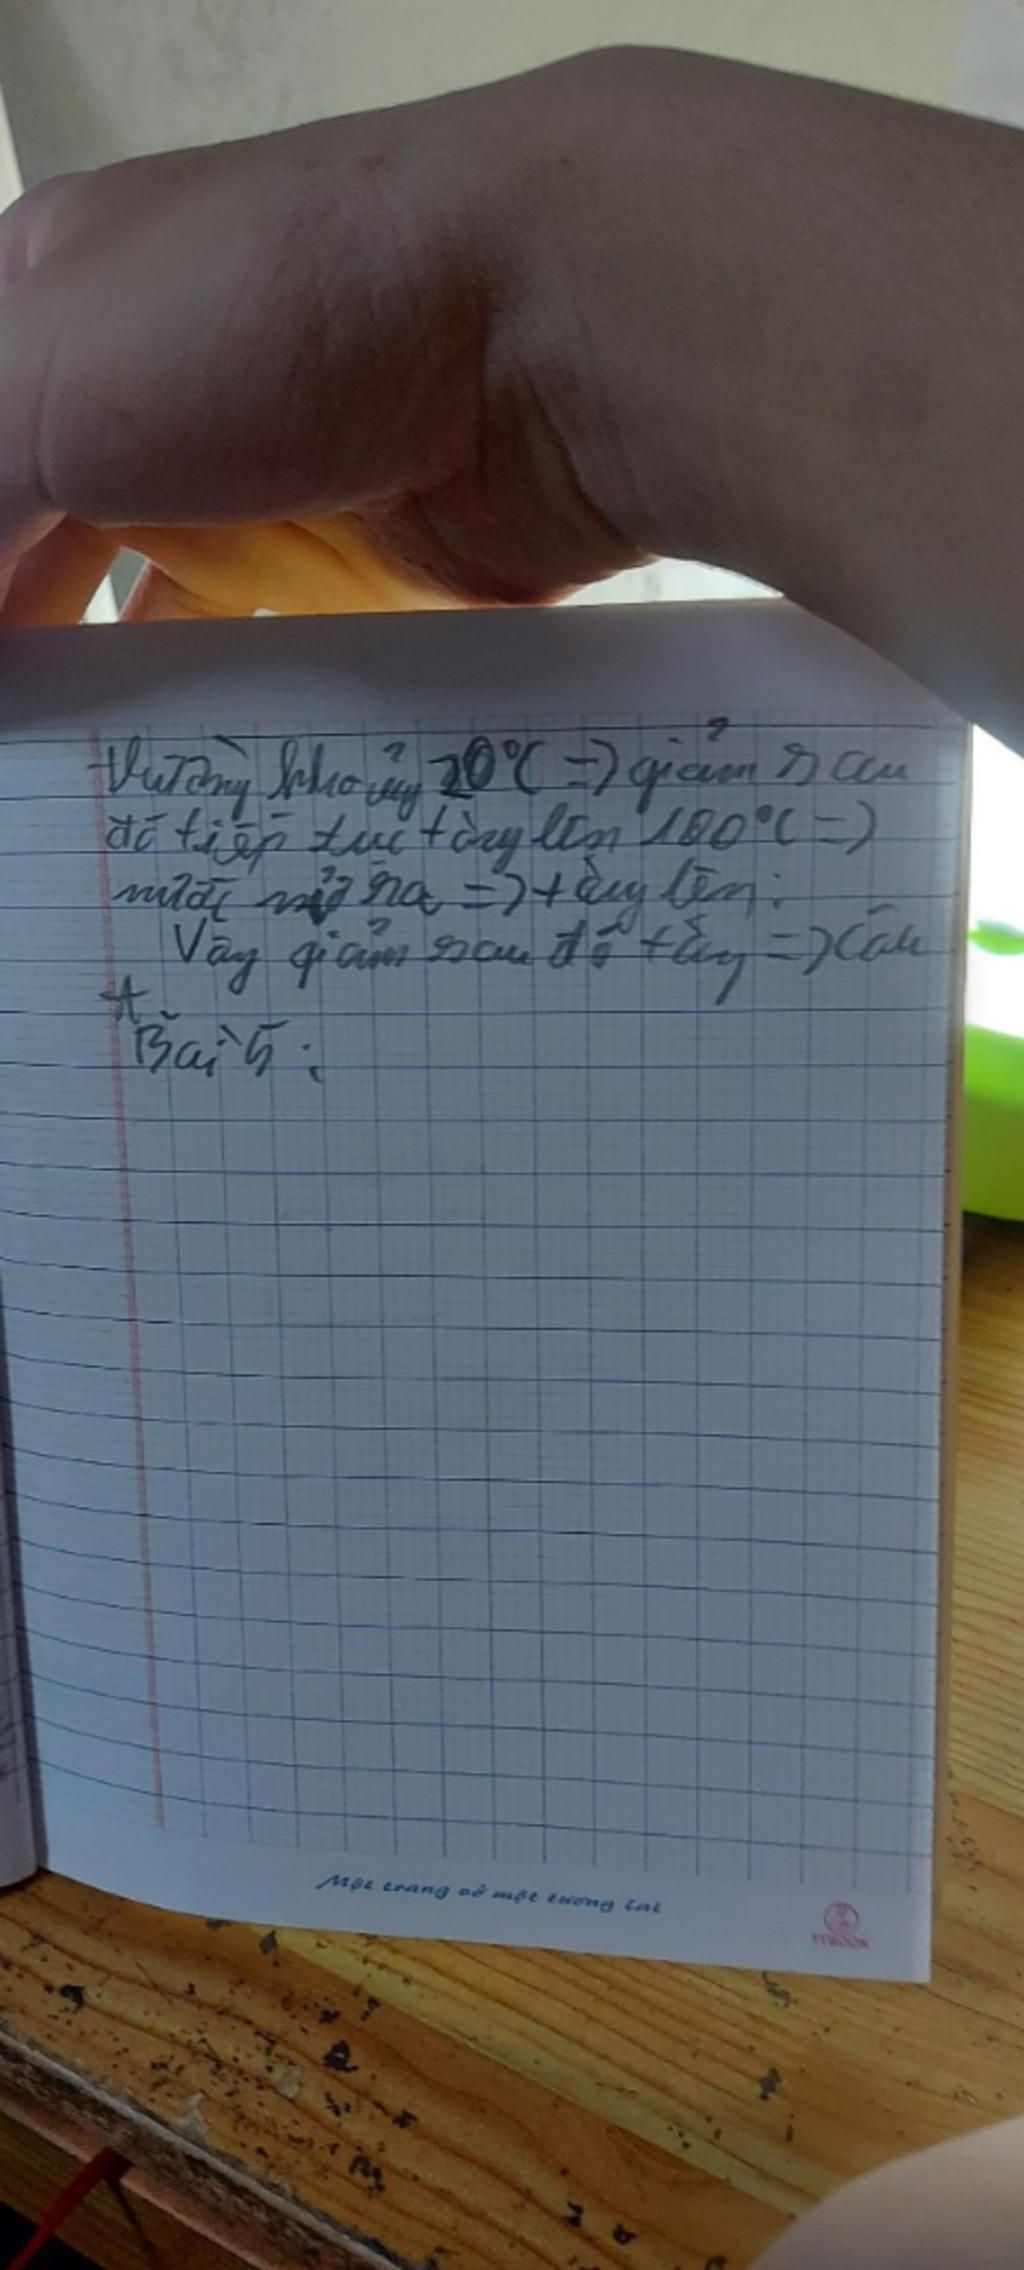 thường khoảng 20°C => giảm sau
đó tiếp tục tăng lên 100°C =>
nước nở ra => tăng lên:
Vậy giảm sau đó tăng => Câu
A
Bài 5:
Một trang vở một tương lai